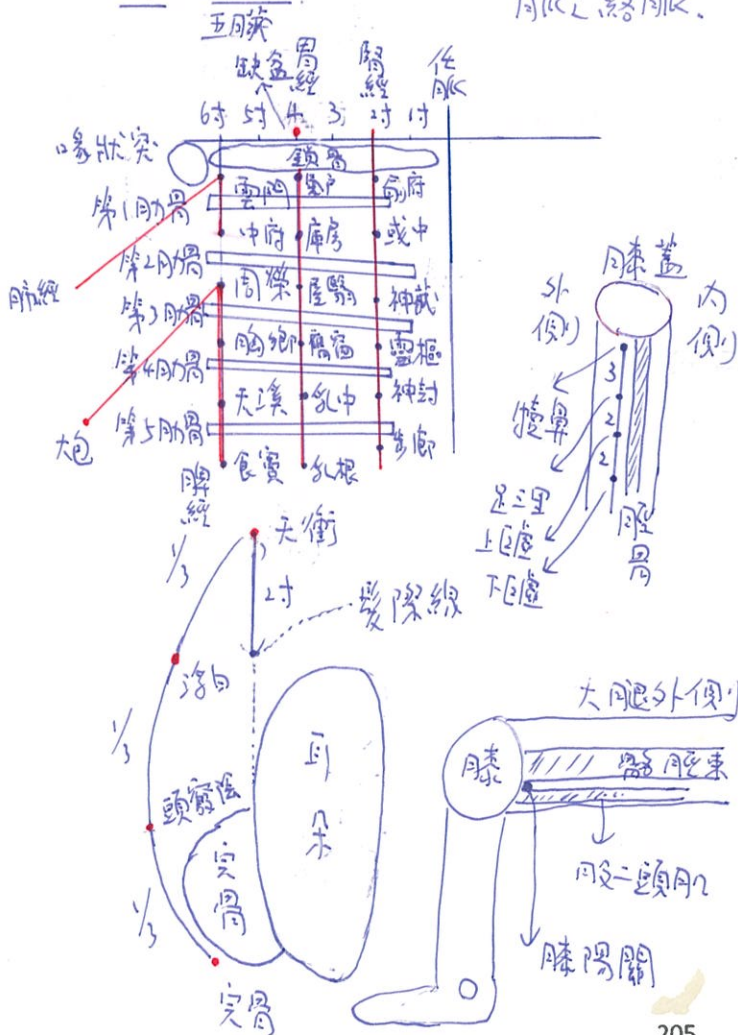 五月蔵
脈之絡脈.
缺盆 胃經 腎經 任脈
6寸 5寸 4 3 2寸 1寸
喙狀突
鎖骨
雲門 氣戶 俞府
第1肋骨
中府 庫房 或中
第2肋骨
肺經
周榮 屋翳 神藏
第3肋骨
胸鄉 膺窗 靈樞
第4肋骨
天溪 乳中 神封
大包
第5肋骨
步廊
脾經
食竇 乳根
膝蓋
外側
內側
3
2
2
犢鼻
足三里
上巨虛
下巨虛
脛骨
天衝
1/3
2寸
髮際線
浮白
1/3
頭竅陰
耳朵
完骨
1/3
完骨
大腿外側
膝
髂脛束
股二頭肌
膝陽關
205